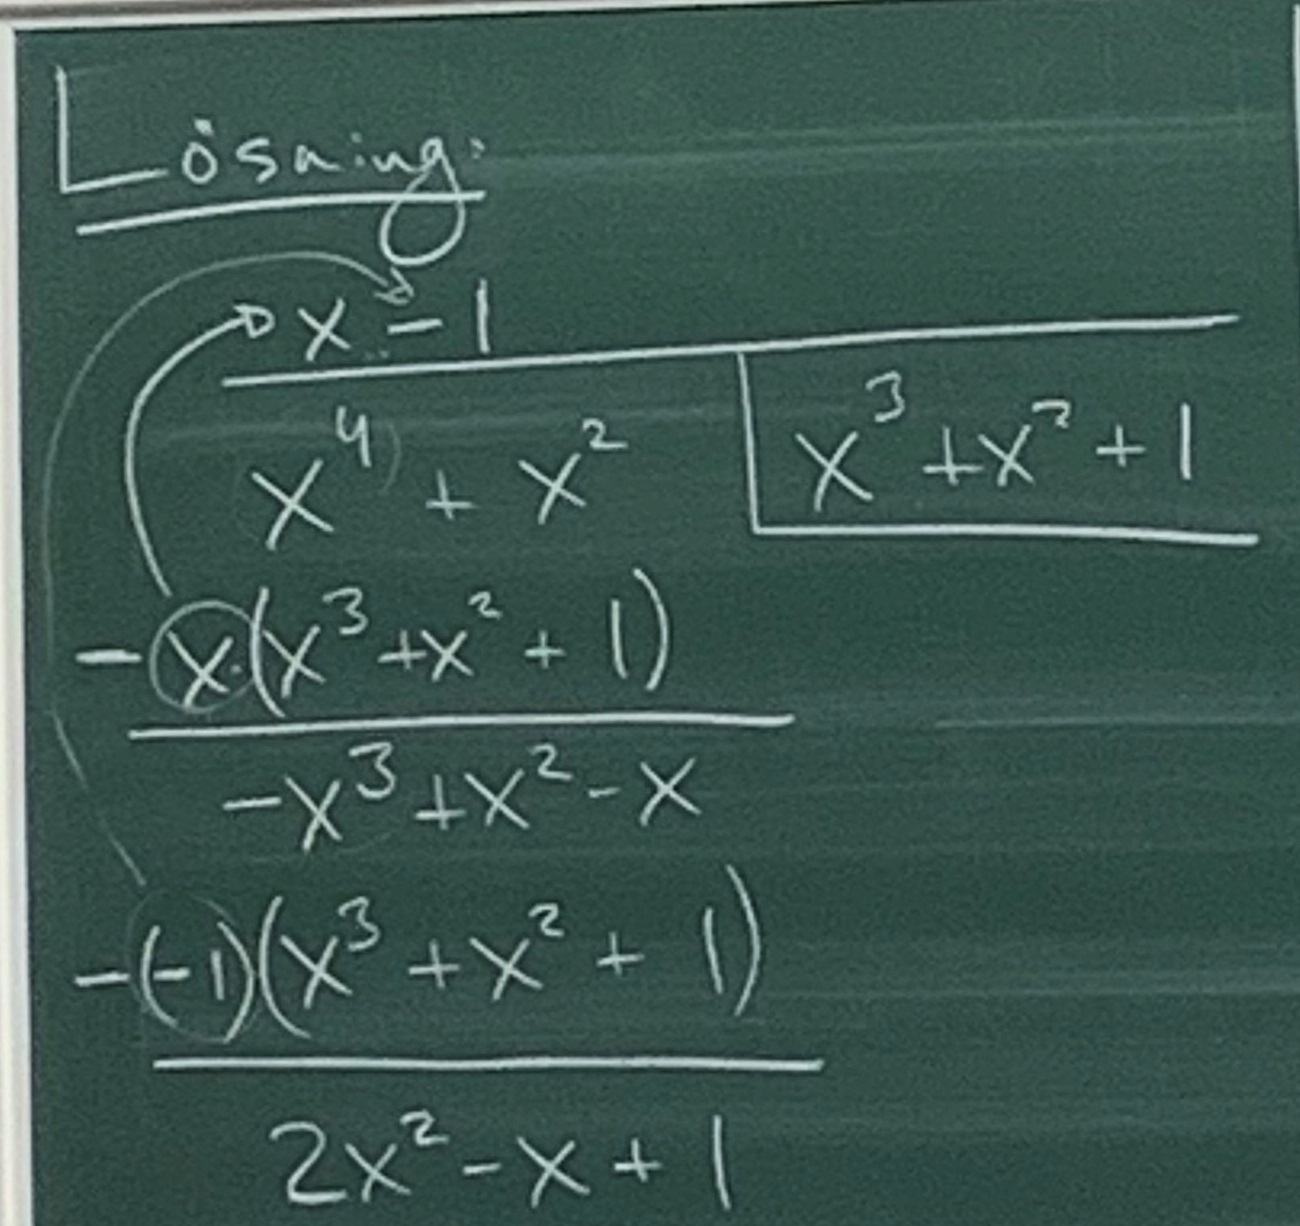 Lösning:
x - 1
x⁴ + x² x³ + x² + 1
- x·(x³ + x² + 1)
-x³ + x² - x
-(-1)(x³ + x² + 1)
2x² - x + 1